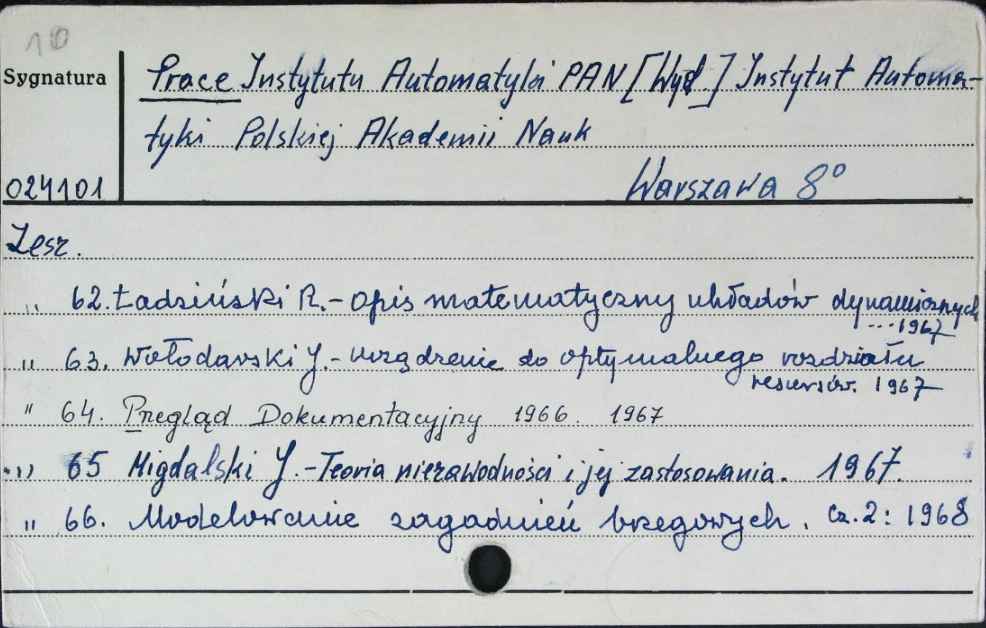 10
Sygnatura
Prace Instytutu Automatyki PAN [Wyd.] Instytut Automa-
tyki Polskiej Akademii Nauk
024101
Warszawa 8°
Zesz.
" 62. Ładziński R. - Opis matematyczny układów dynamicznych
...1967
" 63. Wołodarski J. - urządzenie do optymalnego rozdziału
resursów. 1967
" 64. Przegląd Dokumentacyjny 1966. 1967
" 65 Migdalski J. - Teoria niezawodności i jej zastosowania. 1967.
" 66. Modelowanie zagadnień brzegowych. Cz. 2: 1968